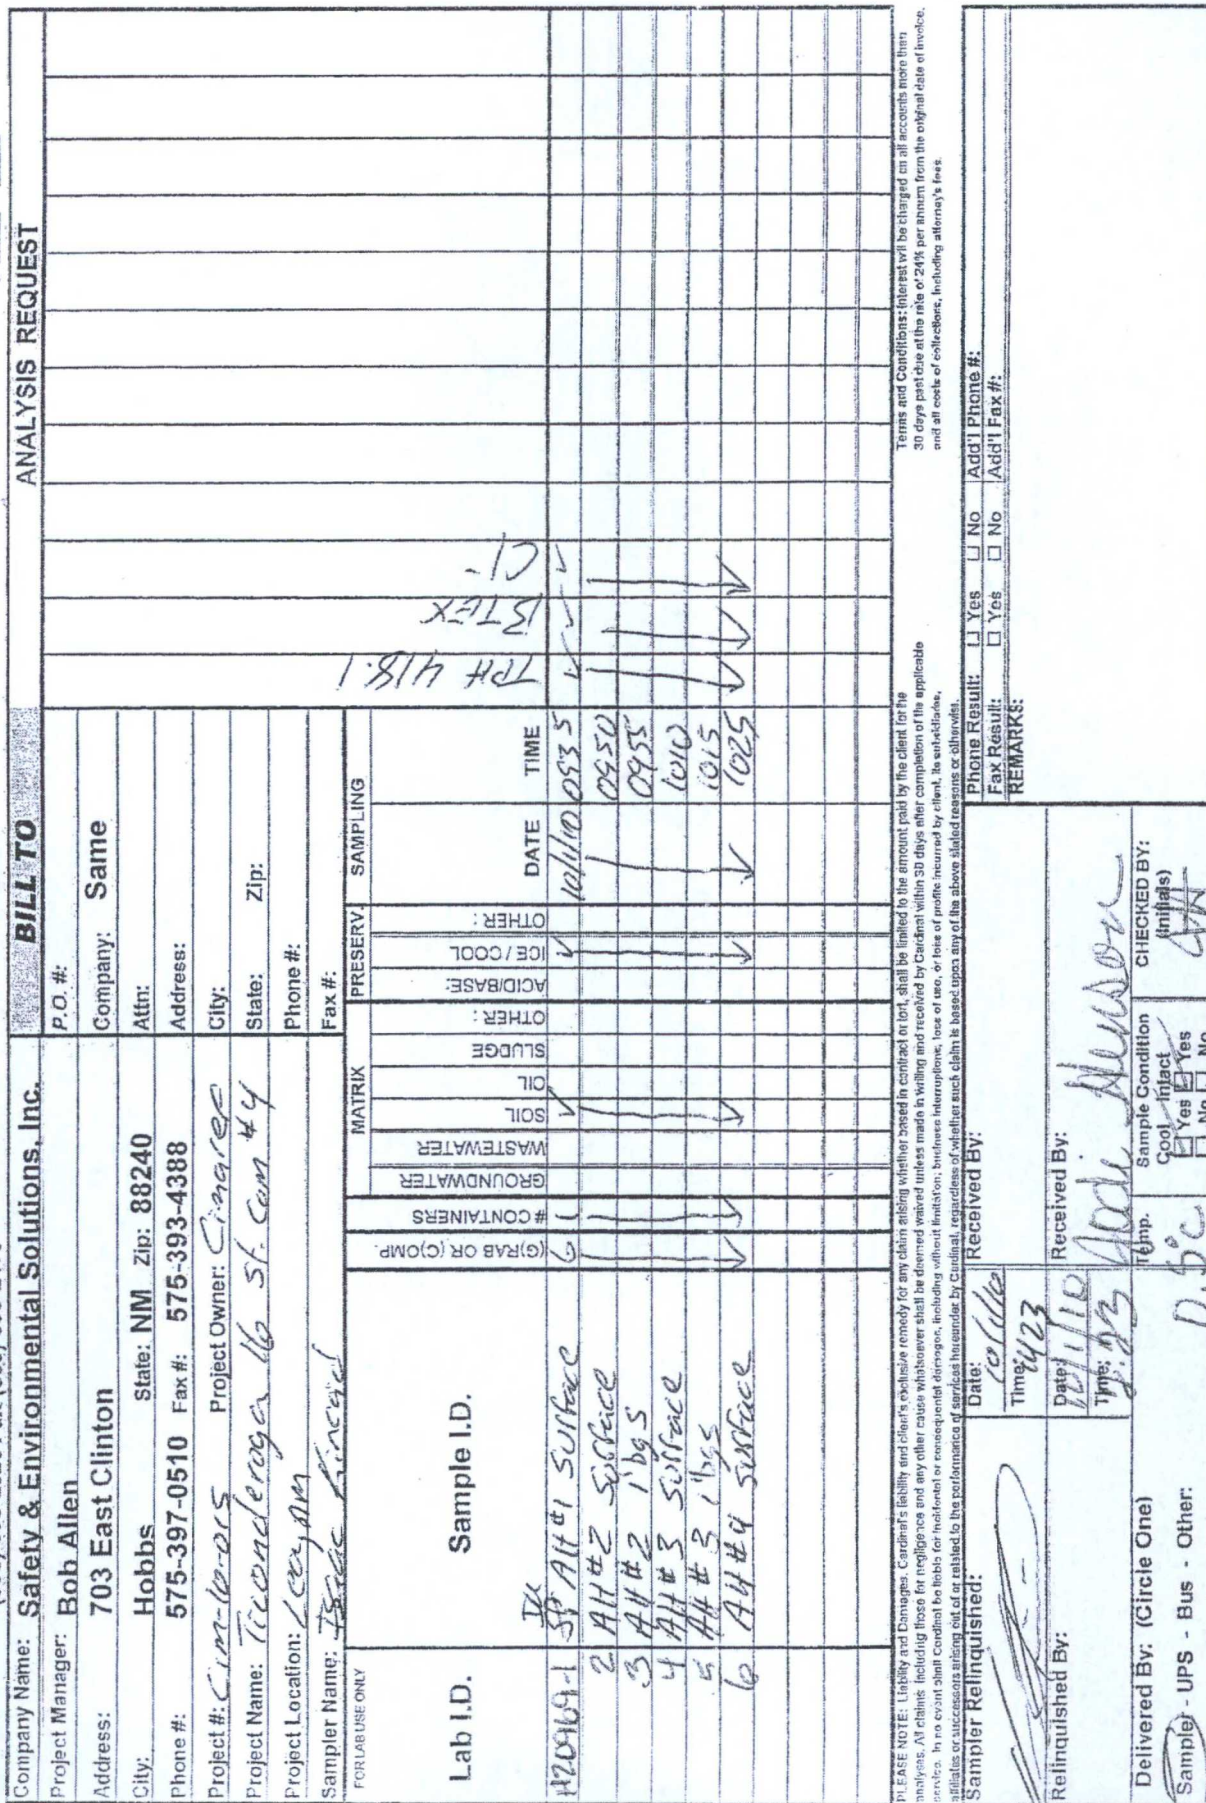 ANALYSIS REQUEST
Company Name: Safety & Environmental Solutions, Inc.
BILL TO
Project Manager: Bob Allen
P.O. #:
Address: 703 East Clinton
Company: Same
City: Hobbs State: NM Zip: 88240
Attn:
Phone #: 575-397-0510 Fax #: 575-393-4388
Address:
Project #: Cim-10-015 Project Owner: Cimarex
City:
Project Name: Ticonderoga 16 St. Com #4
State: Zip:
Project Location:
Phone #:
Sampler Name: Isaac Kincaid
Fax #:
FOR LAB USE ONLY
MATRIX
PRESERV.
SAMPLING
Lab I.D.
Sample I.D.
(G)RAB OR (C)OMP.
# CONTAINERS
GROUNDWATER
WASTEWATER
SOIL
OIL
SLUDGE
OTHER :
ACID/BASE:
ICE / COOL
OTHER :
DATE
TIME
TPH 418.1
BTEX
Cl-
H20969-1 AH #1 Surface G 1 10/1/10 0935
2 AH #2 Surface 0950
3 AH #2 1'bgs 0955
4 AH #3 Surface 1010
5 AH #3 1'bgs 1015
6 AH #4 Surface 1025
PLEASE NOTE: Liability and Damages. Cardinal's liability and client's exclusive remedy for any claim arising whether based in contract or tort, shall be limited to the amount paid by the client for the
analyses. All claims including those for negligence and any other cause whatsoever shall be deemed waived unless made in writing and received by Cardinal within 30 days after completion of the applicable
service. In no event shall Cardinal be liable for incidental or consequental damages, including without limitation, business interruptions, loss of use, or loss of profits incurred by client, its subsidiaries,
affiliates or successors arising out of or related to the performance of services hereunder by Cardinal, regardless of whether such claim is based upon any of the above stated reasons or otherwise.
Terms and Conditions: Interest will be charged on all accounts more than
30 days past due at the rate of 24% per annum from the original date of invoice,
and all costs of collections, including attorney's fees.
Sampler Relinquished:
Date: 10/1/10
Time: 1423
Received By:
Phone Result: □ Yes □ No Add'l Phone #:
Fax Result: □ Yes □ No Add'l Fax #:
REMARKS:
Relinquished By:
Date: 10/1/10
Time:
Received By:
Jodi Henson
Delivered By: (Circle One)
Sampler - UPS - Bus - Other:
Temp.
Sample Condition
Cool Intact
□ Yes □ Yes
□ No □ No
CHECKED BY:
(Initials)